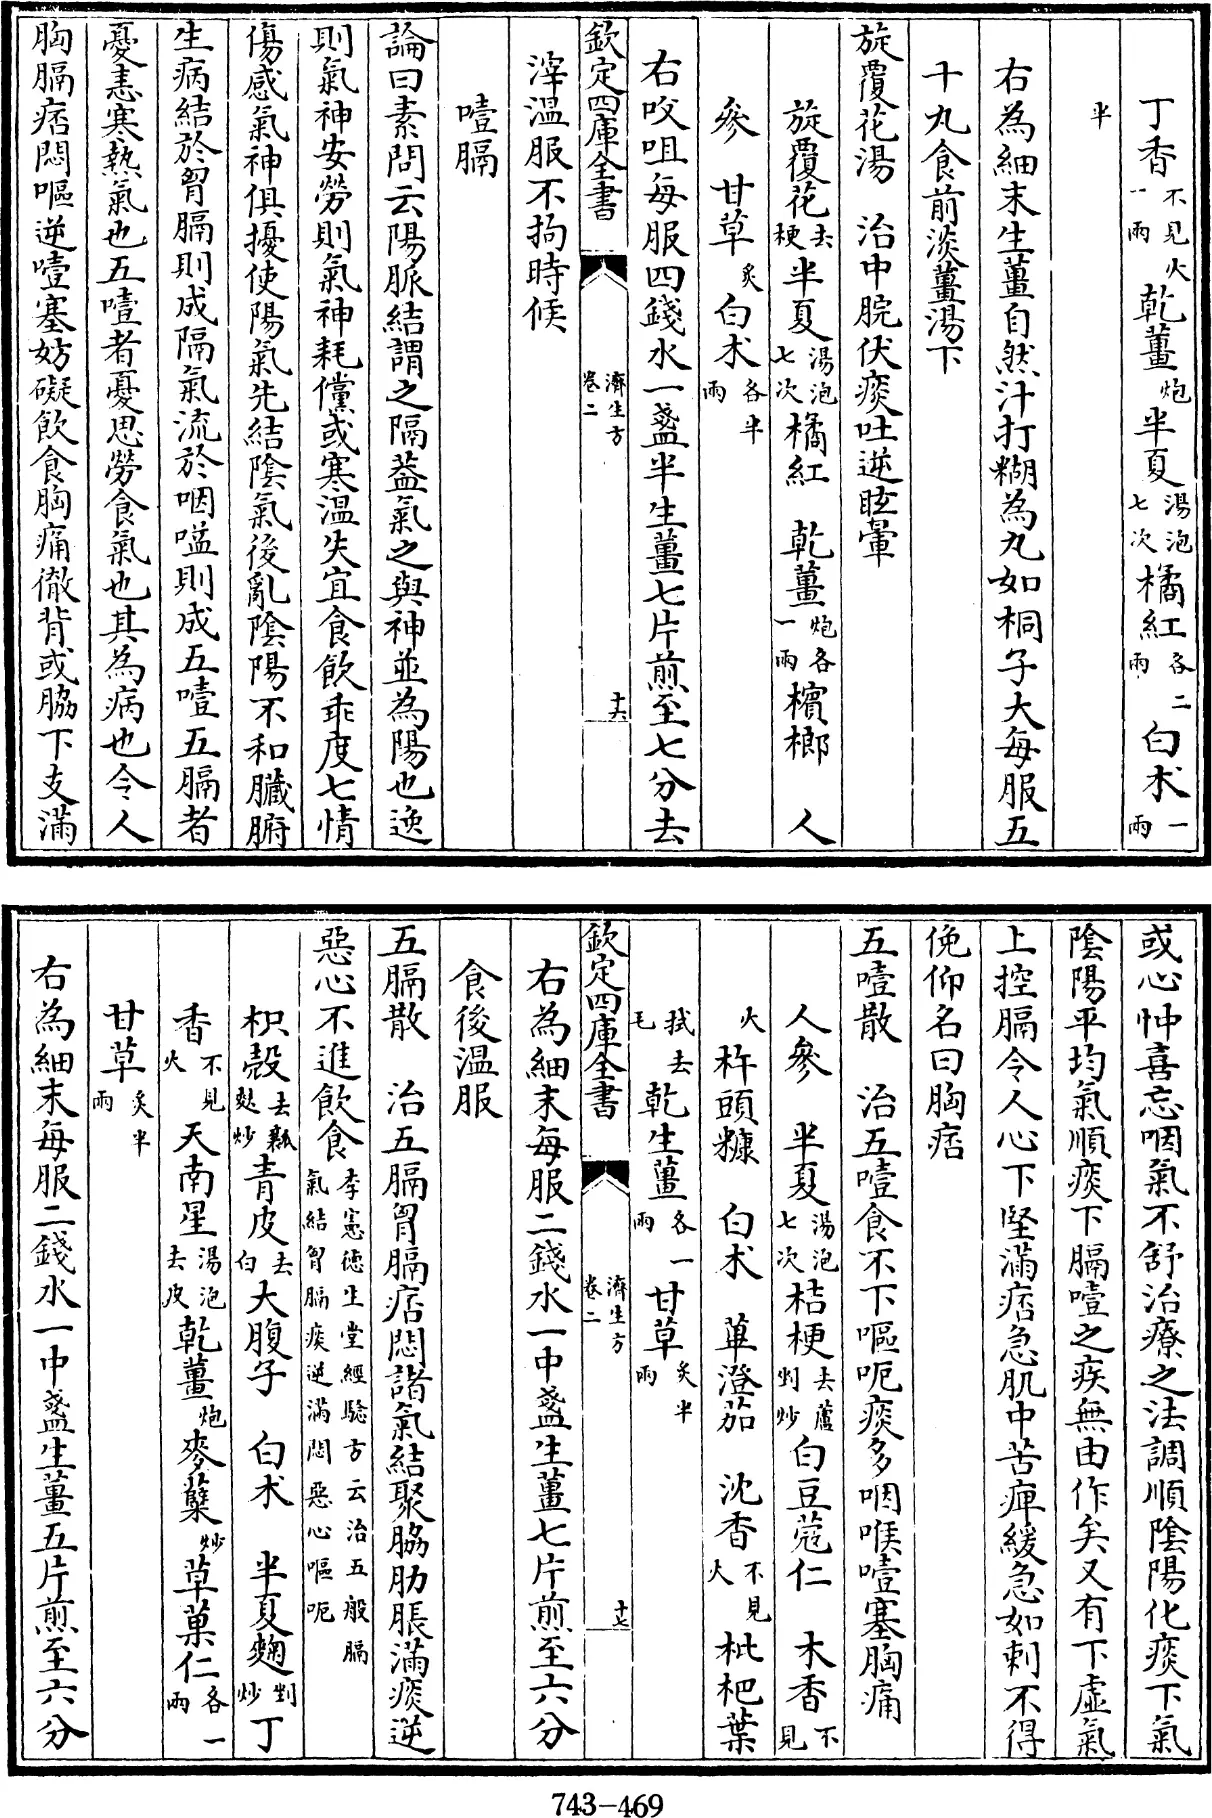 丁香不見火一兩乾薑炮半夏湯泡七次橘紅各二兩白朮一兩
半
右為細末生薑自然汁打糊為丸如桐子大每服五
十丸食前淡薑湯下
旋覆花湯　治中脘伏痰吐逆眩暈
旋覆花去梗半夏湯泡七次橘紅　乾薑炮各一兩檳榔　人
參　甘草炙白朮各半兩
右㕮咀每服四錢水一盞半生薑七片煎至七分去
欽定四庫全書　濟生方卷二　十六
滓溫服不拘時候
噎膈
論曰素問云陽脈結謂之隔葢氣之與神並為陽也逸
則氣神安勞則氣神耗儻或寒溫失宜食飲乖度七情
傷感氣神俱擾使陽氣先結陰氣後亂陰陽不和臟腑
生病結於胷膈則成隔氣流於咽嗌則成五噎五膈者
憂恚寒熱氣也五噎者憂思勞食氣也其為病也令人
胸膈痞悶嘔逆噎塞妨礙飲食胸痛徹背或脇下支滿
或心忡喜忘咽氣不舒治療之法調順陰陽化痰下氣
陰陽平均氣順痰下膈噎之疾無由作矣又有下虛氣
上控膈令人心下堅滿痞急肌中苦痺緩急如刺不得
俛仰名曰胸痞
五噎散　治五噎食不下嘔呃痰多咽喉噎塞胸痛
人參　半夏湯泡七次桔梗去蘆剉炒白豆蔻仁　木香不見
火　杵頭糠　白朮　蓽澄茄　沈香不見火　枇杷葉
拭去毛　乾生薑各一兩甘草炙半兩
欽定四庫全書　濟生方卷二　十七
右為細末每服二錢水一中盞生薑七片煎至六分
食後溫服
五膈散　治五膈胷膈痞悶諸氣結聚脇肋脹滿痰逆
惡心不進飲食李憲德生堂經驗方云治五般膈氣結胷膈痰逆滿悶惡心嘔呃
枳殼去瓤麩炒青皮去白大腹子　白朮　半夏麴剉炒丁
香不見火　天南星湯泡去皮乾薑炮麥蘗炒草菓仁各一兩
甘草炙半兩
右為細末每服二錢水一中盞生薑五片煎至六分
743-469